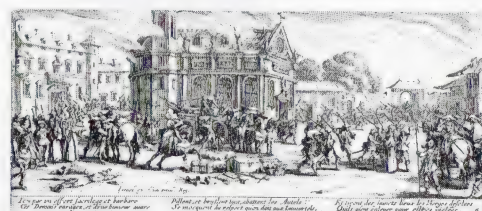 Icy par un effort sacrilege et barbare
Ces Demons enragez, et d'une humeur avare
Pillent, et bruslent tout, abattent les Autels ;
Se mocquent du respect qu'on doit aux Immortels,
Et tirent des saincts lieux les Vierges desolees